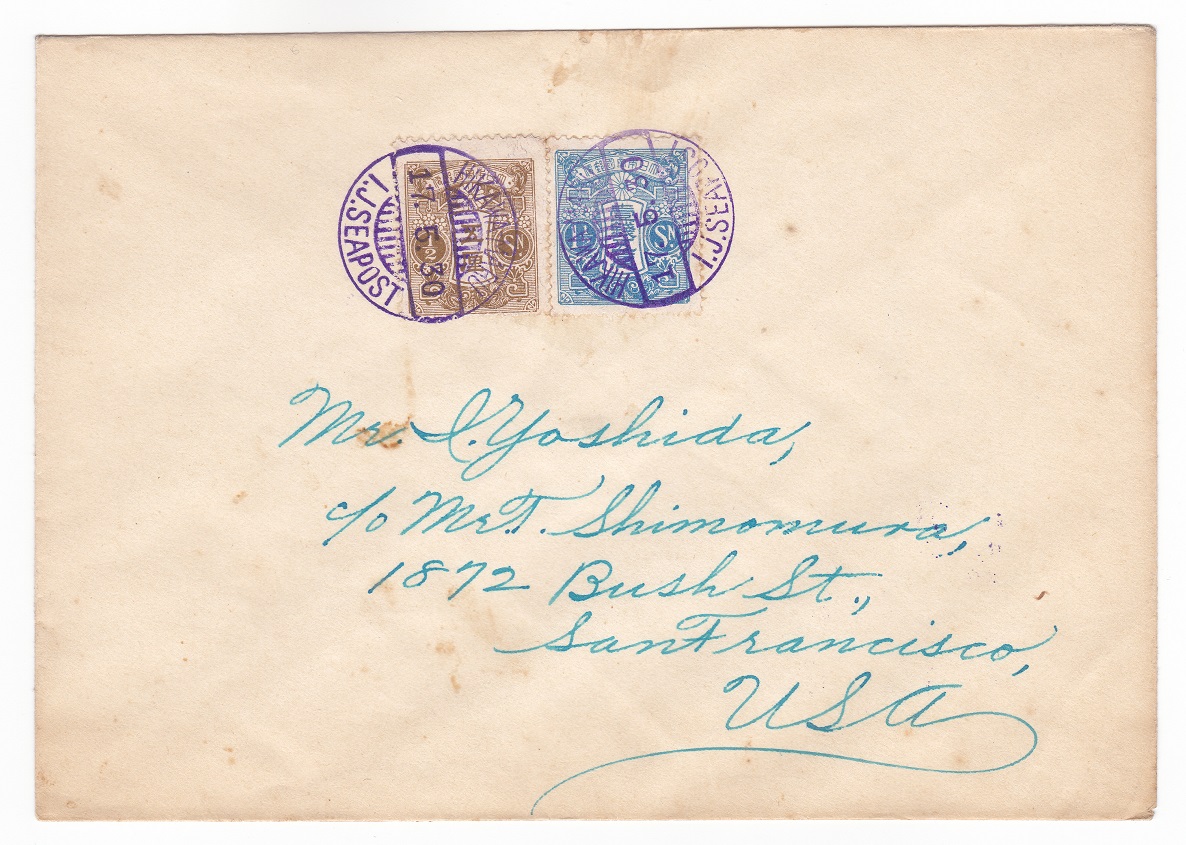 I.J.SEAPOST
17.5.30
1/2
SN
I.J.SEAPOST
17.5.30
1½
SN
Mr. I. Yoshida,
c/o Mr. T. Shimomura,
1872 Bush St.,
San Francisco,
USA